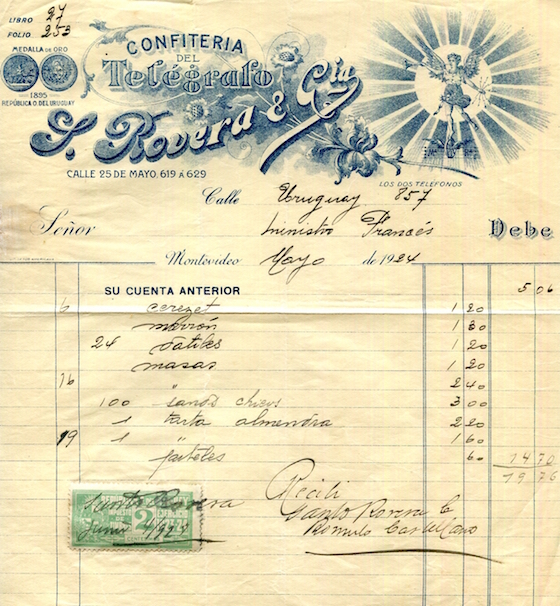 LIBRO 27
FOLIO 253
MEDALLA DE ORO
1895
REPÚBLICA O. DEL URUGUAY
CONFITERIA
DEL
Telégrafo
S. Rovera & Cía
CALLE 25 DE MAYO, 619 Á 629
LOS DOS TELÉFONOS
Calle Uruguay 857
Señor Ministro Francés Debe
Montevideo Mayo de 1924
SU CUENTA ANTERIOR 5 06
6 1 20
marrón 1 80
24 dátiles 1 20
masas 1 20
16 " 2 40
100 sandw 3 00
1 tarta almendra 2 20
19 1 " 1 60
pasteles 60 14 70
19 76
Recibí
Santo Rovera
Santo Rovera C
Romulo
2
Junio 4/924